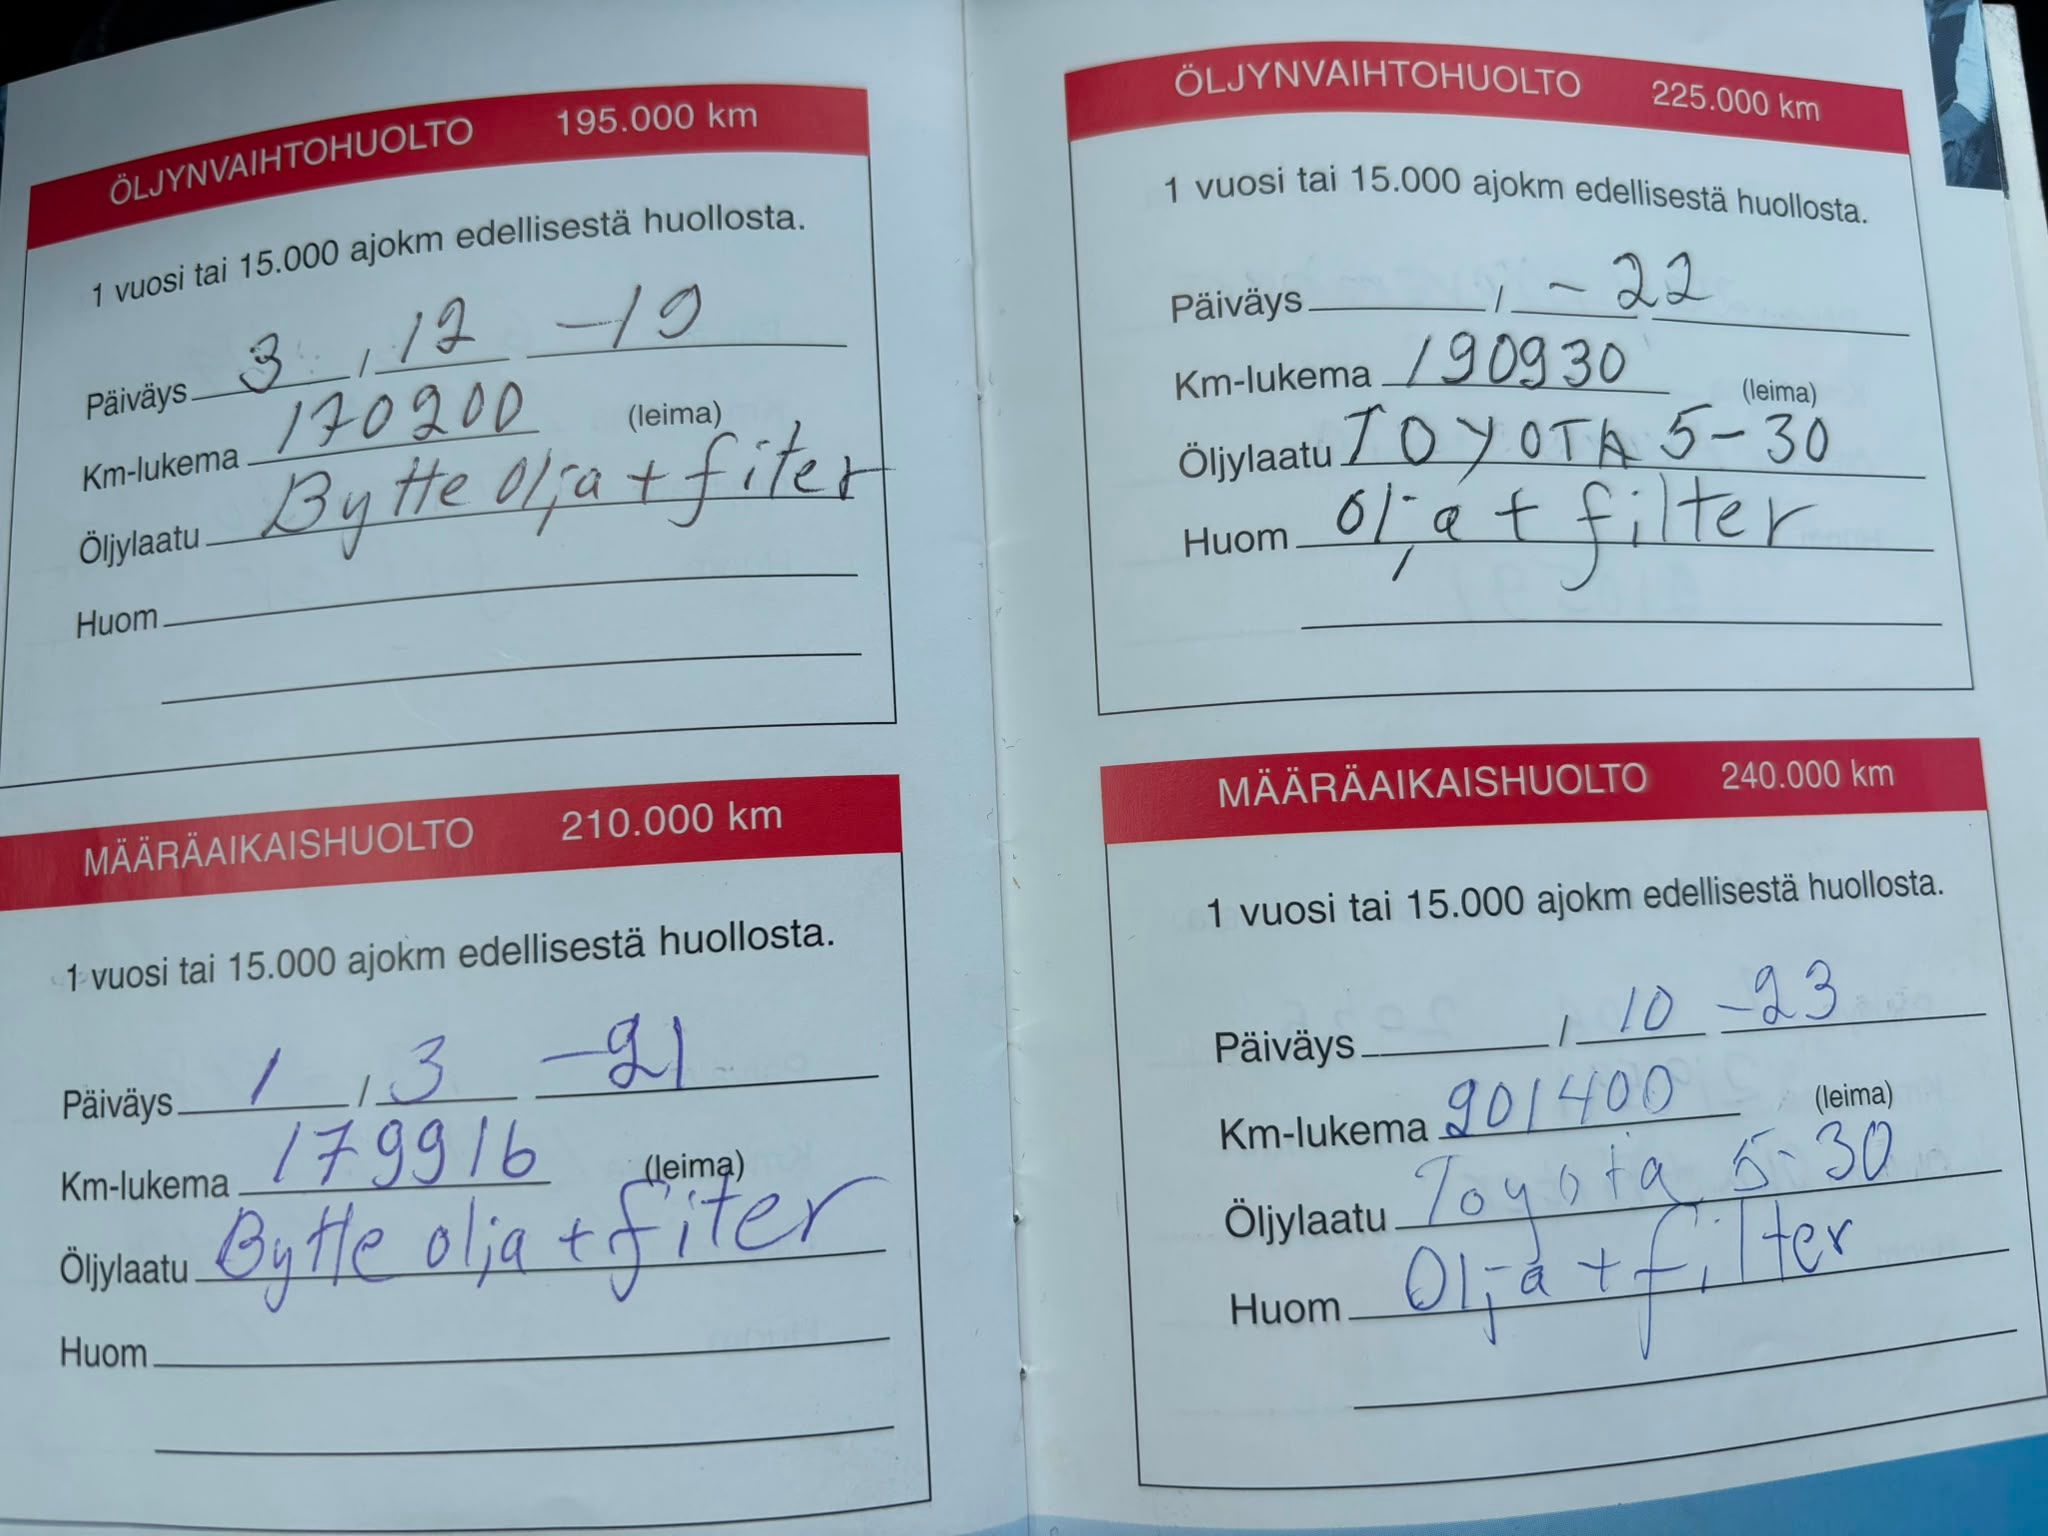 ÖLJYNVAIHTOHUOLTO 195.000 km
1 vuosi tai 15.000 ajokm edellisestä huollosta.
Päiväys 3 / 12 -19
Km-lukema 170200 (leima)
Öljylaatu Bytte olja + fiter
Huom
MÄÄRÄAIKAISHUOLTO 210.000 km
1 vuosi tai 15.000 ajokm edellisestä huollosta.
Päiväys 1 / 3 -21
Km-lukema 179916 (leima)
Öljylaatu Bytte olja + fiter
Huom
ÖLJYNVAIHTOHUOLTO 225.000 km
1 vuosi tai 15.000 ajokm edellisestä huollosta.
Päiväys / -22
Km-lukema 190930 (leima)
Öljylaatu TOYOTA 5-30
Huom olja + filter
MÄÄRÄAIKAISHUOLTO 240.000 km
1 vuosi tai 15.000 ajokm edellisestä huollosta.
Päiväys / 10 -23
Km-lukema 201400 (leima)
Öljylaatu Toyota 5-30
Huom Olja + filter